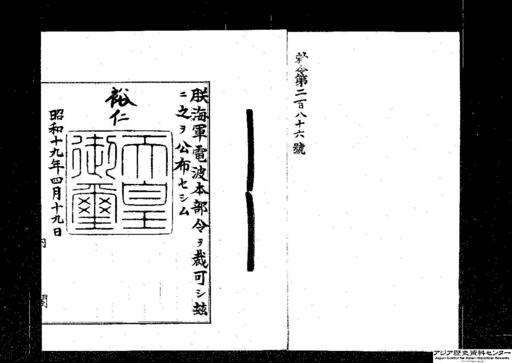 勅令第二百八十六號
朕海軍電波本部令ヲ裁可シ茲
ニ之ヲ公布セシム
裕仁
天皇御璽
昭和十九年四月十九日
内閣
アジア歴史資料センター
Japan Center for Asian Historical Records